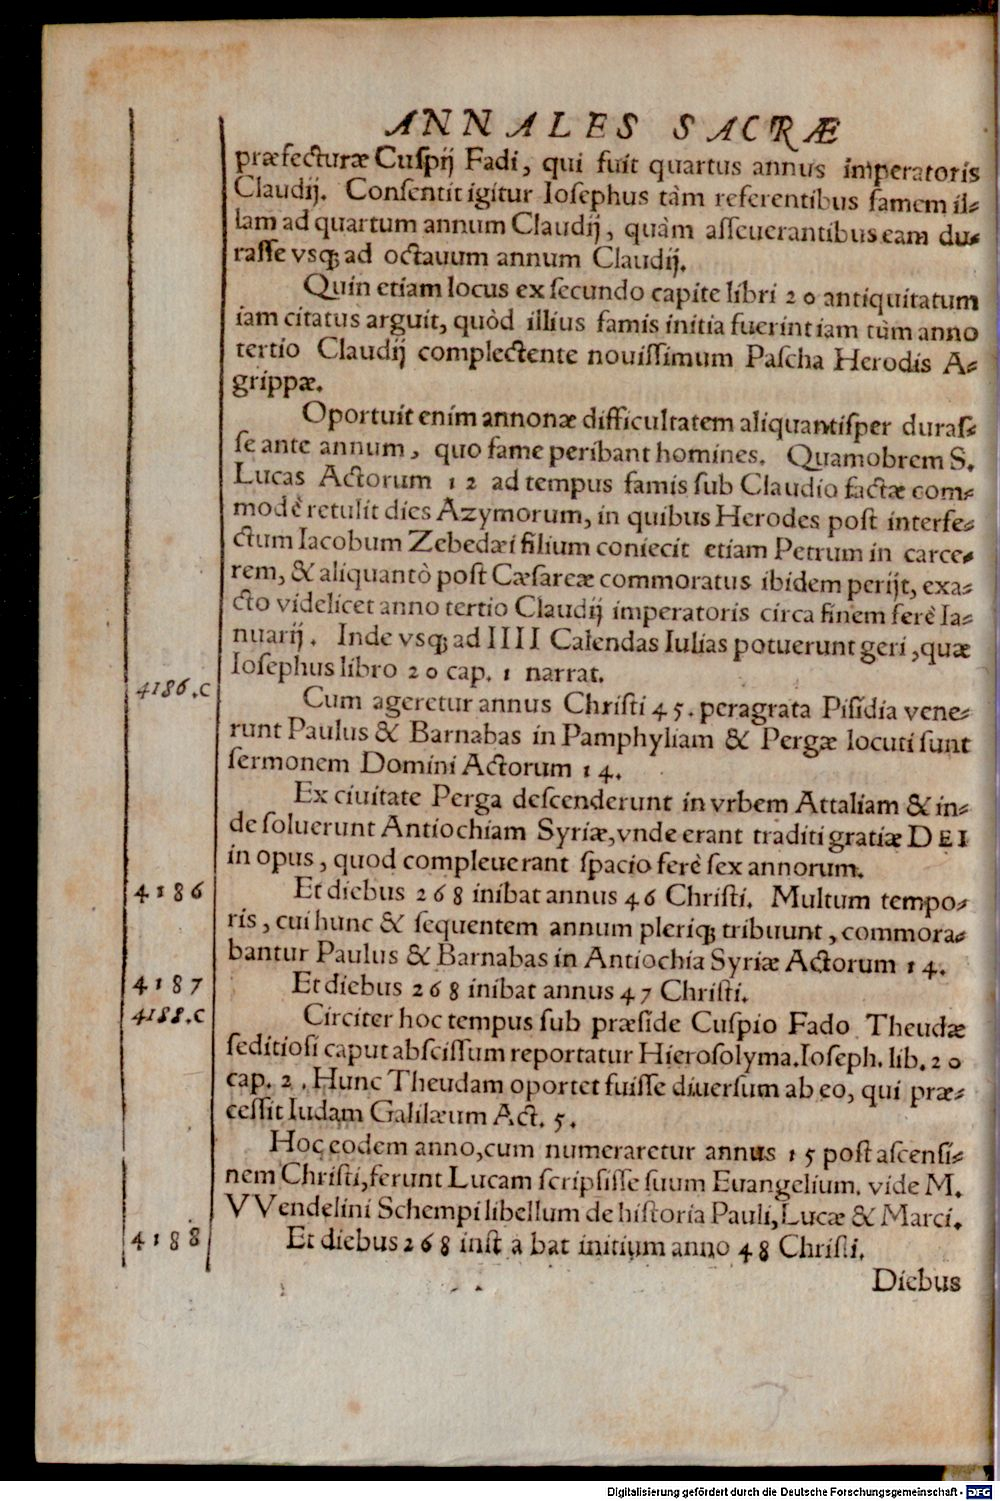 ANNALES SACRÆ
præfecturæ Cuſpij Fadi, qui fuit quartus annus imperatoris
Claudij. Conſentit igitur Ioſephus tàm referentibus famem il-
lam ad quartum annum Claudij, quàm aſſeuerantibus eam du-
raſſe vsq; ad octauum annum Claudij.
Quin etiam locus ex ſecundo capite libri 20 antiquitatum
iam citatus arguit, quòd illius famis initia fuerint iam tùm anno
tertio Claudij complectente nouiſſimum Paſcha Herodis A-
grippæ.
Oportuit enim annonæ difficultatem aliquantiſper duraſ-
ſe ante annum, quo fame peribant homines. Quamobrem S.
Lucas Actorum 12 ad tempus famis ſub Claudio factæ com-
modè retulit dies Azymorum, in quibus Herodes poſt interfe-
ctum Iacobum Zebedæi filium coniecit etiam Petrum in carce-
rem, & aliquantò poſt Cæſareæ commoratus ibidem perijt, exa-
cto videlicet anno tertio Claudij imperatoris circa finem ferè Ia-
nuarij. Inde vsq; ad IIII Calendas Iulias potuerunt geri, quæ
Ioſephus libro 20 cap. 1 narrat.
4186.C
Cum ageretur annus Chriſti 45. peragrata Piſidia vene-
runt Paulus & Barnabas in Pamphyliam & Pergæ locuti ſunt
ſermonem Domini Actorum 14.
Ex ciuitate Perga deſcenderunt in vrbem Attaliam & in-
de ſoluerunt Antiochiam Syriæ, vnde erant traditi gratiæ DEI
in opus, quod compleuerant ſpacio ferè ſex annorum.
4186
Et diebus 268 inibat annus 46 Chriſti. Multum tempo-
ris, cui hunc & ſequentem annum pleriq; tribuunt, commora-
bantur Paulus & Barnabas in Antiochia Syriæ Actorum 14.
4187
Et diebus 268 inibat annus 47 Chriſti.
4188.C
Circiter hoc tempus ſub præſide Cuſpio Fado Theudæ
ſeditioſi caput abſciſſum reportatur Hieroſolyma. Ioſeph. lib. 20
cap. 2. Hunc Theudam oportet fuiſſe diuerſum ab eo, qui præ-
ceſſit Iudam Galilæum Act. 5.
Hoc eodem anno, cum numeraretur annus 15 poſt aſcenſi-
nem Chriſti, ferunt Lucam ſcripſiſſe ſuum Euangelium. vide M.
VVendelini Schempi libellum de hiſtoria Pauli, Lucæ & Marci.
4188
Et diebus 268 inſt a bat initium anno 48 Chriſti.
Diebus
Digitalisierung gefördert durch die Deutsche Forschungsgemeinschaft - DFG